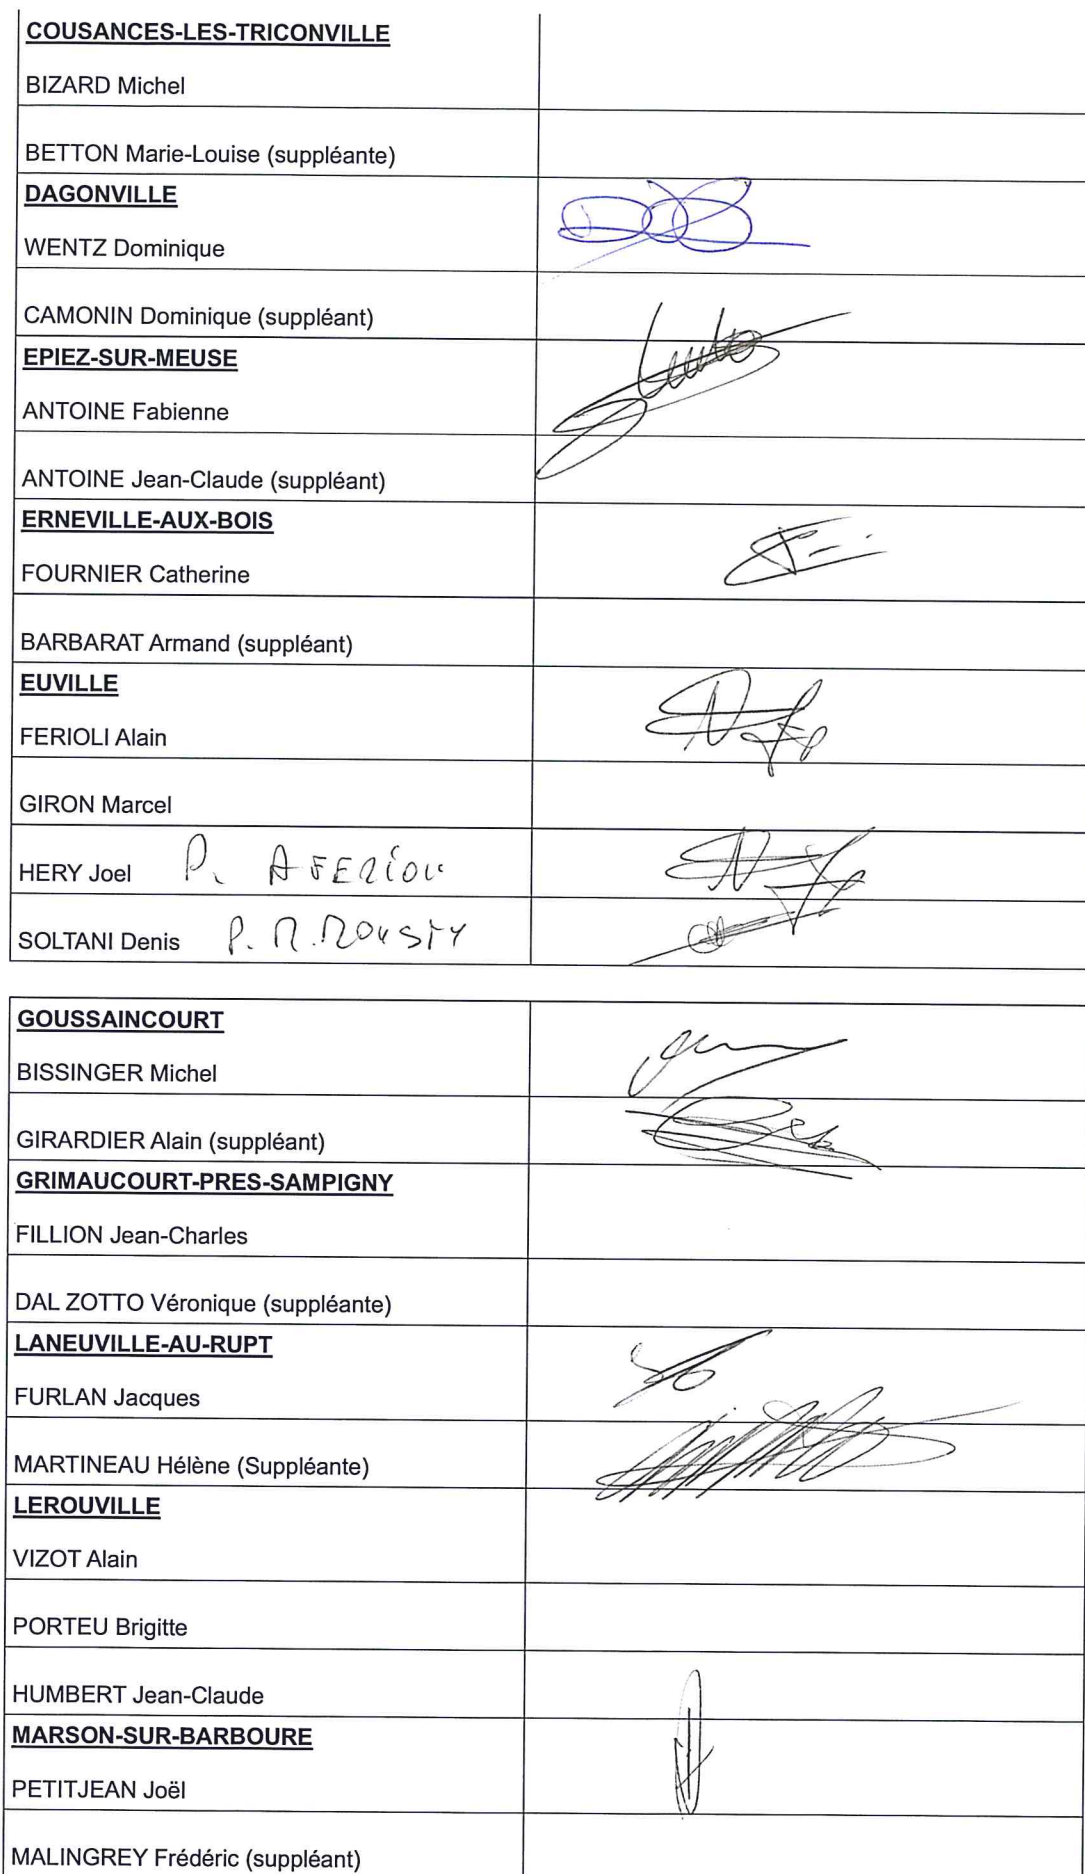 COUSANCES-LES-TRICONVILLE
BIZARD Michel
BETTON Marie-Louise (suppléante)
DAGONVILLE
WENTZ Dominique
CAMONIN Dominique (suppléant)
EPIEZ-SUR-MEUSE
ANTOINE Fabienne
ANTOINE Jean-Claude (suppléant)
ERNEVILLE-AUX-BOIS
FOURNIER Catherine
BARBARAT Armand (suppléant)
EUVILLE
FERIOLI Alain
GIRON Marcel
HERY Joel P. A FERIOLI
SOLTANI Denis P. M. MOUSTY
GOUSSAINCOURT
BISSINGER Michel
GIRARDIER Alain (suppléant)
GRIMAUCOURT-PRES-SAMPIGNY
FILLION Jean-Charles
DAL ZOTTO Véronique (suppléante)
LANEUVILLE-AU-RUPT
FURLAN Jacques
MARTINEAU Hélène (Suppléante)
LEROUVILLE
VIZOT Alain
PORTEU Brigitte
HUMBERT Jean-Claude
MARSON-SUR-BARBOURE
PETITJEAN Joël
MALINGREY Frédéric (suppléant)